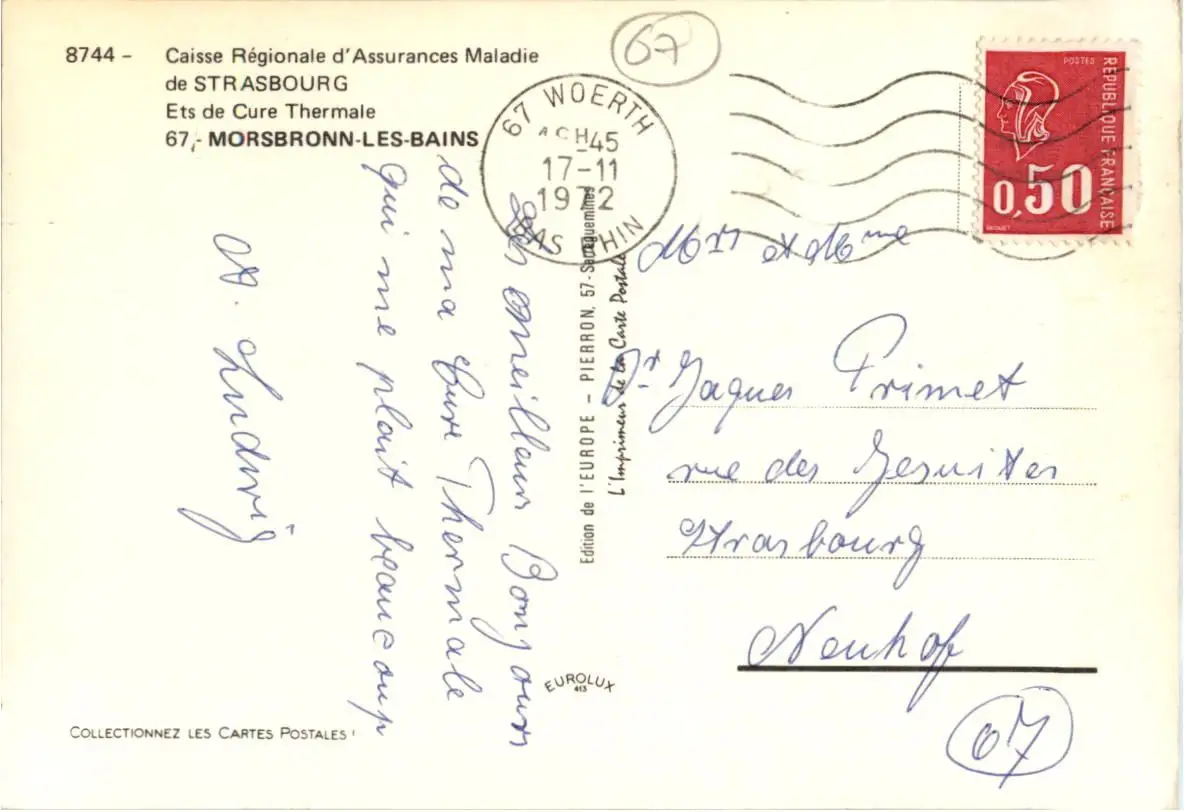 8744 - Caisse Régionale d'Assurances Maladie
de STRASBOURG
Ets de Cure Thermale
67,- MORSBRONN-LES-BAINS
67
67 WOERTH
17-11
1972
BAS RHIN
POSTES
REPUBLIQUE FRANÇAISE
0,50
Les meilleurs Bonjours
de ma Cure Thermale
qui me plait beaucoup
A. Ludwig
Edition de l'EUROPE - PIERRON, 57-Sarreguemines
L'Imprimeur de la Carte Postale
Mr et Mme
Jaques Primet
rue des Jesuites
Strasbourg
Neuhof
67
EUROLUX
413
COLLECTIONNEZ LES CARTES POSTALES !